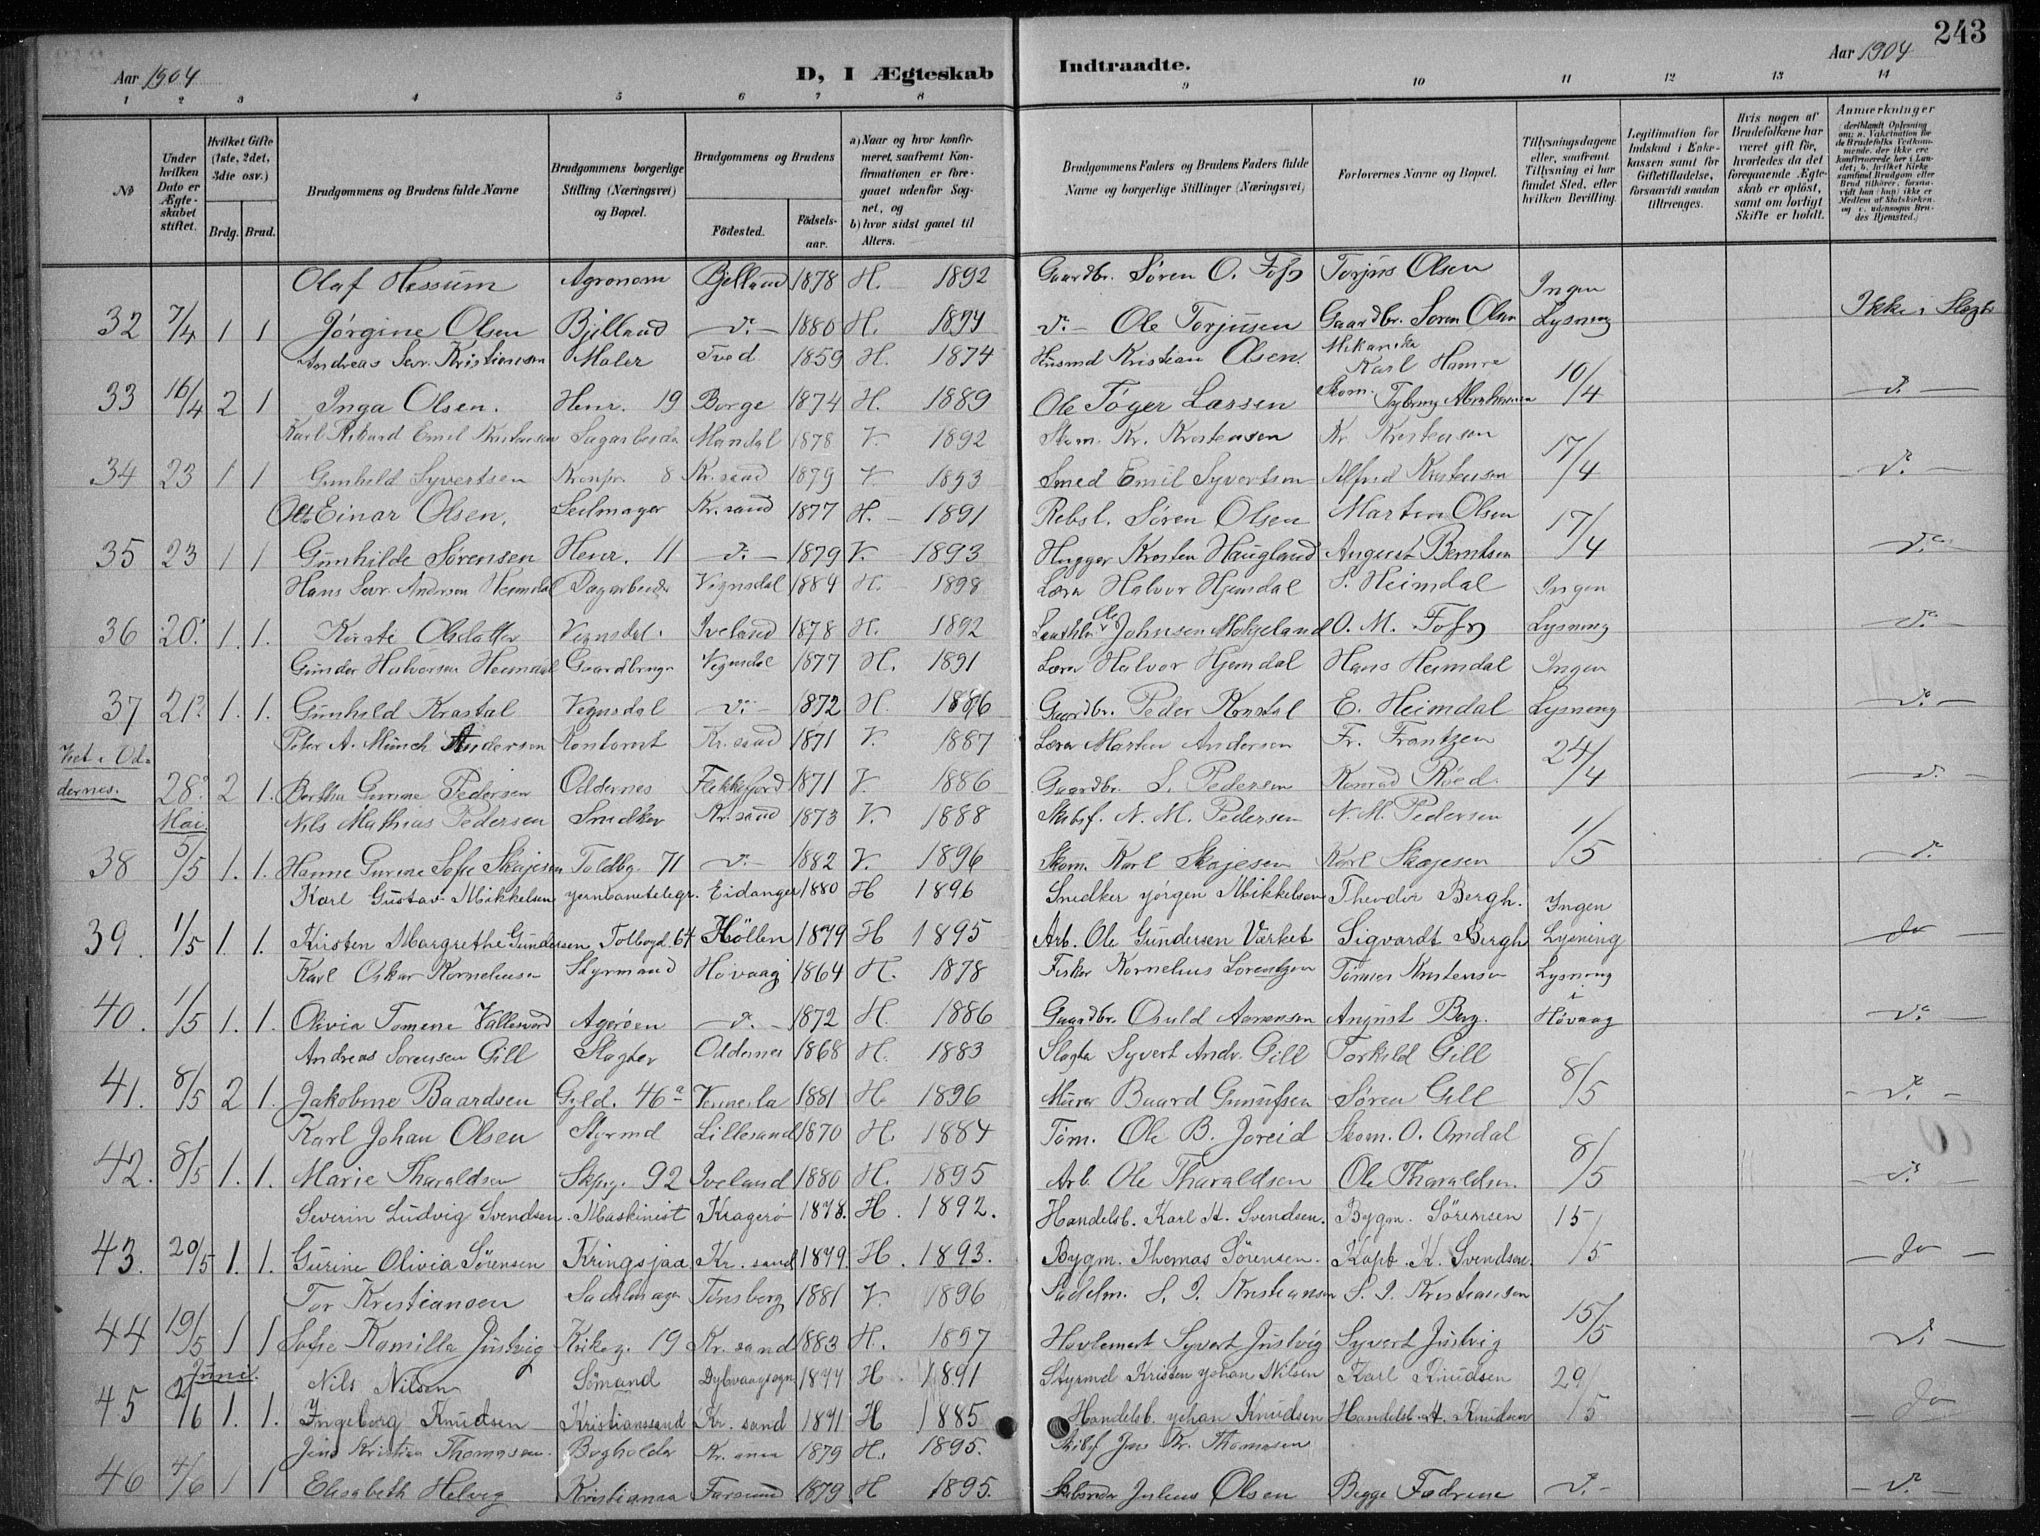 243
Aar 1904
D, I Ægteskab Indtraadte.
Aar 1904
1 2 3 4 5 6 7 8 9 10 11 12 13 14
No
Under hvilken Dato er Ægteskabet stiftet.
Hvilket Gifte (1ste, 2det, 3die osv.)
Brdg. Brud.
Brudgommens og Brudens fulde Navne
Brudgommens borgerlige Stilling (Næringsvei) og Bopæl.
Brudgommens og Brudens
Födested. Födsels-aar.
a) Naar og hvor konfirmeret, saafremt Konfirmationen er foregaaet udenfor Sognet, og
b) hvor sidst gaaet til Alters.
Brudgommens Faders og Brudens Faders fulde Navne og borgerlige Stillinger (Næringsvei)
Forlovernes Navne og Bopæl.
Tillysningsdagene eller, saafremt Tillysning ei har fundet Sted, efter hvilken Bevilling.
Legitimation for Indskud i Enkekassen samt for Giftetilladelse, forsaavidt saadan tiltrænges.
Hvis nogen af Brudefolkene har været gift för, hvorledes da det foregaaende Ægteskab er oplöst, samt om lovligt Skifte er holdt.
Anmærkninger
Olaf Hessum Agronom Bjelland 1878 H. 1892 Gaardbr. Søren O. Foss Torjus Olsen Ingen
32 7/4 1 1 Jörgine Olsen Bjelland do 1880 H. 1894 do Ole Torjusen Gaardbr. Soren Olsen Lysning Ikke i Slægt
Andreas Sev. Kristiansen Maler Tved 1859 H. 1874 Husmd Kristian Olsen. Karl Hamre 10/4
33 16/4 2 1 Inga Olsen. Henr. 19 Borge 1874 H. 1889 Ole Töger Lassen Skom. do
Karl Rikard Emil Kristensen Sagarbeider Mandal 1878 V. 1892 Skom. Kr. Kristensen Kr. Kristensen 17/4
34 23 1 1 Gunhild Syvertsen Kronpr. 8 Kr.sand 1879 V. 1893 Smed Emil Syvertsen Alfred Kristensen do
Otto Einar Olsen, Seilmager Kr.sand 1877 H. 1891 Rebsl. Søren Olsen Martin Olsen 17/4
35 23 1 1 Gunhilde Sørensen Henr. 11 do 1879 V. 1893 Hugger Kristen Haugland August Berntsen do
Hans Sevr. Andersen Heimdal Dagarbeider Vegusdal 1884 H. 1898 Lærer Halvor Hjemdal S. Heimdal Ingen
36 20. 1. 1. Kirsti Olsdatter Vegusdal. Iveland 1878 H. 1892 Ole Johnsen O. M. Foss Lysning do
Gunder Halvorsen Heimdal Gaardbruger Vegusdal 1877 H. 1891 Lærer Halvor Hjemdal Hans Heimdal Ingen
37 21. 1. 1. Gunhild Krastal Vegusdal do 1872 H. 1886 Gaardbr. Peder E. Heimdal Lysning do
Viet i Oddernes.
Peter A. Münch Andersen Kontorist Kr.sand 1871 V. 1887 Lærer Martin Andersen Fr. Frantzen 24/4
28. 2 1. Berthe Gurine Pedersen Oddernes Flekkefjord 1871 V. 1886 Gaardbr. S. Pedersen Konrad Röed. do
Mai. Nils Mathias Pedersen Snedker Kr.sand 1873 V. 1888 Skibsf. N. M. Pedersen N. M. Pedersen 1/5
38 5/5 1. 1. Hanne Gurine Sofie Skajesen Toldbg. 71 do 1882 V. 1896 Skom. Karl Skajesen Karl Skajesen do
Karl Gustav Mikkelsen jernbanetelegr. Eidanger 1880 H 1896 Snedker Jörgen Mikkelsen Theodor Bergh. Ingen
39. 1/5 1. 1. Kirsten Margrethe Gundersen Tolbogd. 64 Höllen 1879 H 1895 Arb. Ole Gundersen Værket Sigvardt Bergh Lysning do
Karl Oskar Korneliusen Styrmand Høvaag 1864 H. 1878 Fisker Kornelius Lorentzen Tønnes Kristensen Lysning i
40. 1/5 1. 1. Olivia Tomene Vallesverd Agerøen do 1872 H. 1886 Gaardbr. Osuld Aanensen August Berg. Høvaag do
Andreas Sorensen Gill Slagter Oddernes 1868 H. 1883 Slagter Syvert Andr. Gill Torkild Gill 8/5
41. 8/5 2 1. Jakobine Baardsen Gyld. 46a Vennesla 1881 H. 1896 Murer Baard Gunufsen Søren Gill do
Karl Johan Olsen Styrmd Lillesand 1870 H. 1884 Tøm. Ole B. Joreid Skom. O. Omdal 8/5
42. 8/5 1. 1. Marie Tharaldsen Skpg. 92 Iveland 1880 H. 1895 Arb. Ole Tharaldsen Ole Tharaldsen. do
Severin Ludvig Svendsen. Maskinist Kragerø 1878. H. 1892. Handelsb. Karl A. Svendsen. Bygm. Sörensen 15/5
43. 20/5 1. 1. Gurine Olivia Sörensen Kringsjaa Kr. sand 1879. H. 1893. Bygm. Thomas Sörensen. Kapt. K. Svendsen. do
Tor Kristiansen Sadelmager Tönsberg 1881 V. 1896 Sadelm. S. I. Kristiansen S. I. Kristiansen 15/5
44 19/5 1 1 Sofie Kamilla Justvig Kirkeg. 19 Kr. sand 1883 H. 1897 Syvert Justvig Syvert Justvig do
Juni. Nils Nilsen Sömand Dybvaagsogn 1877 H. 1891 Styrmd Kristen Johan Nilsen Karl Knudsen 29/5
45 2/6 1. 1. Ingeborg Knudsen Kristianssand Kr. sand 1871. H 1885 Handelsb. Johan Knudsen Handelsb. A. Knudsen do
Jens Kristian Thomasen. Bogholder 1879 H. 1895. Skibsf Jens Kr. Thomasen
46 4/6 1 1 Elisabeth Helvig Kristiania Farsund 1879 H 1895. Skibsreder Julius Olsen Begge Fædrene do do